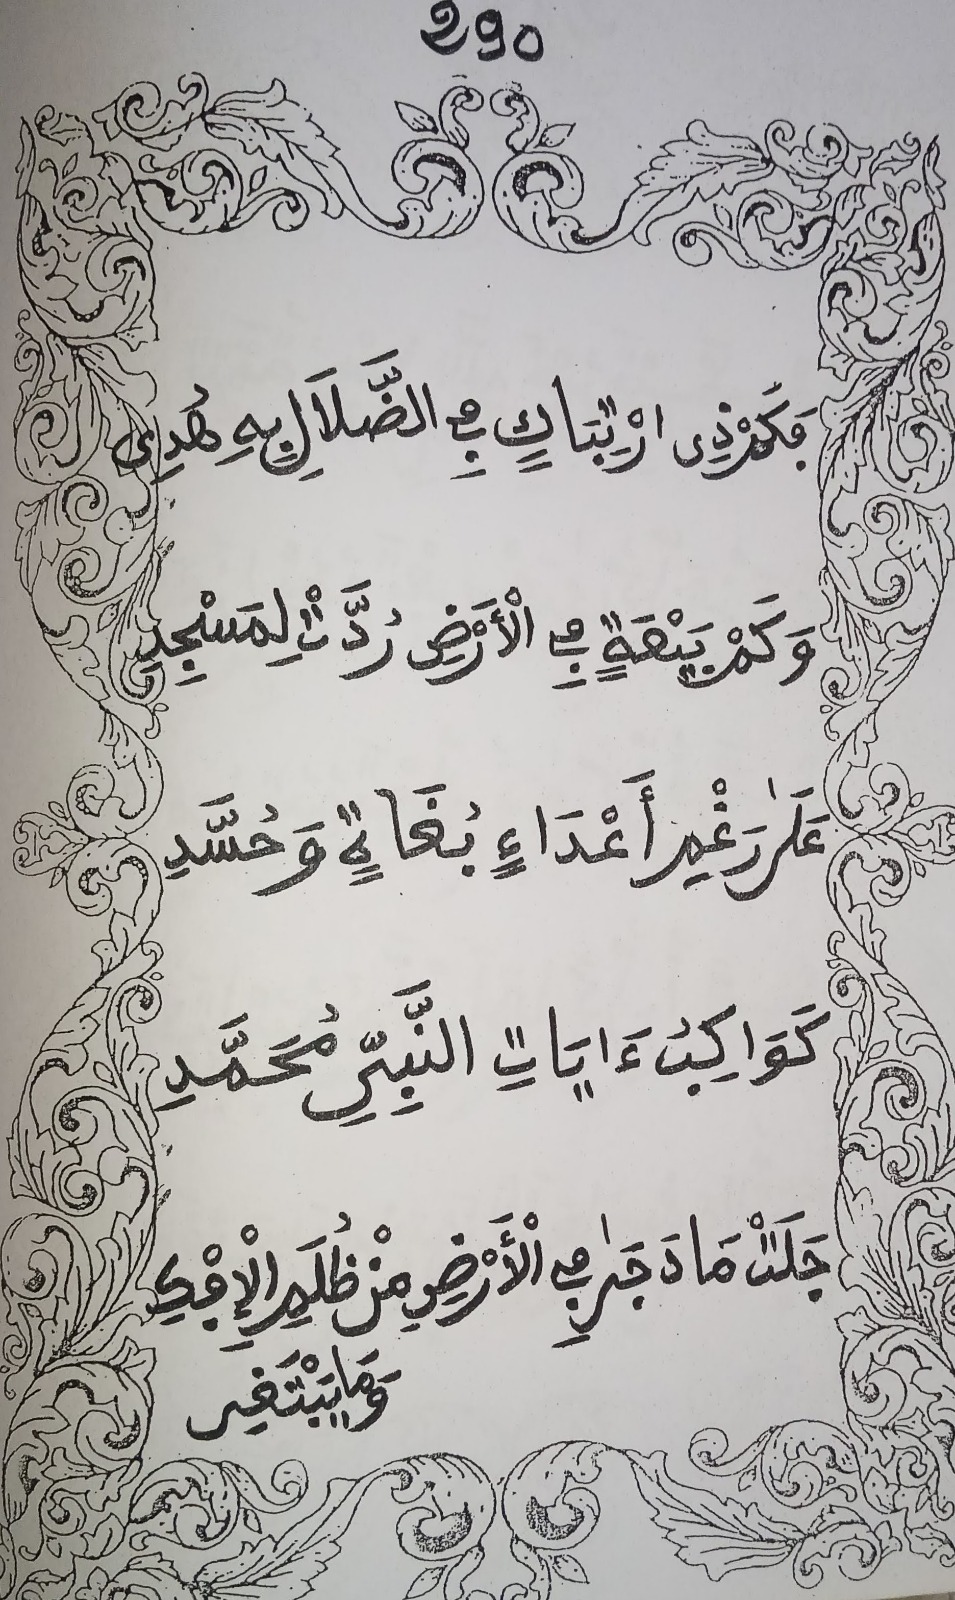 290
فَكَمْ ذِي ارْتِبَاكٍ فِي الضَّلَالِ بِهِ هُدِي
وَكَمْ بَيْعَةٍ فِي الْأَرْضِ رُدَّتْ لِمَسْجِدِ
عَلَىٰ رَغْمِ أَعْدَاءٍ بُغَاةٍ وَحُسَّدِ
كَوَاكِبُ ءَايَاتِ النَّبِيِّ مُحَمَّدِ
جَلَتْ مَا دَجَىٰ فِي الْأَرْضِ مِنْ ظُلَمِ الْإِفْكِ
وَمَا يَبْتَغِي